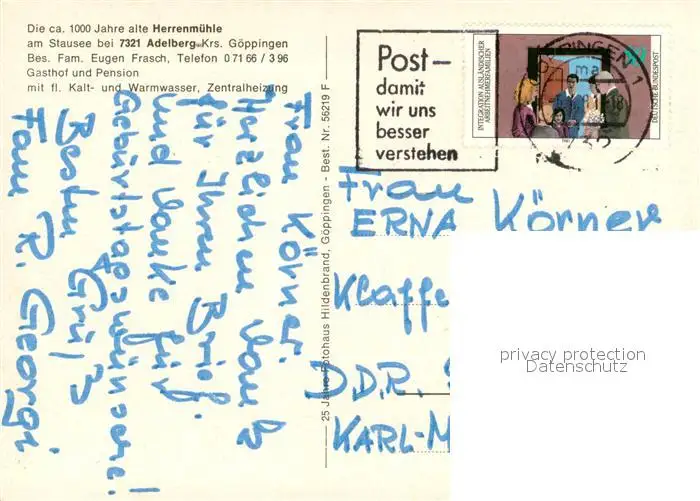 Die ca. 1000 Jahre alte Herrenmühle
am Stausee bei 7321 Adelberg-Krs. Göppingen
Bes. Fam. Eugen Frasch, Telefon 0 71 66 / 3 96
Gasthof und Pension
mit fl. Kalt- und Warmwasser, Zentralheizung
Frau Körner.
Herzlichen Dank
für Ihren Brief.
und Danke für
Geburtstagswünsche!
Besten Gruß
Fam R. Georgi
25 Jahre Fotohaus Hildenbrand, Göppingen - Best. Nr. 56219 F
Post-
damit
wir uns
besser
verstehen
INTEGRATION AUSLÄNDISCHER
ARBEITNEHMERFAMILIEN
DEUTSCHE BUNDESPOST
Frau
ERNA Körner
Klaffe
DDR.
KARL-M
privacy protection
Datenschutz